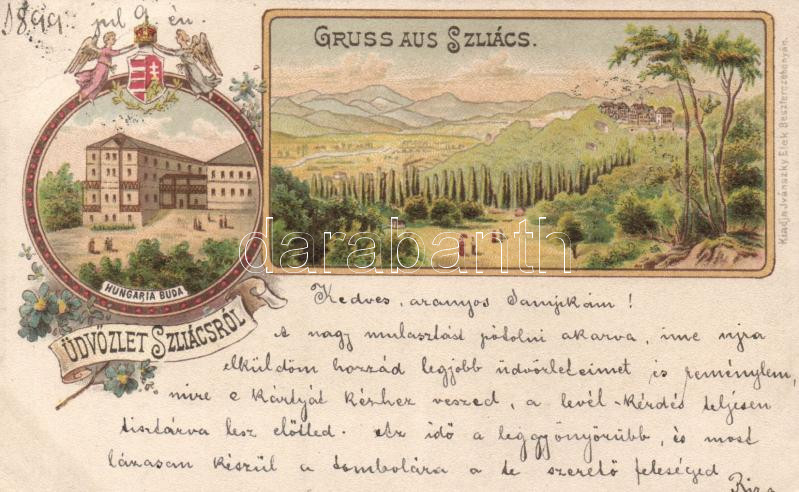 1899 jul 9. én.
GRUSS AUS SZLIÁCS.
HUNGARIA BUDA
ÜDVÖZLET SZLIÁCSRÓL
Kiadja Ivánszky Elek Beszterczebányán.
darabanth
Kedves, aranyos Samukám!
A nagy mulasztást pótolni akarva, ime ujra
elküldöm hozzád legjobb üdvözleteimet és reménylem,
mire e kártyát kézhez veszed, a levél-kérdés teljesen
tisztázva lesz előtted. Az idő a leggyönyörűbb, és most
lázasan készül a tombolára a te szerető feleséged